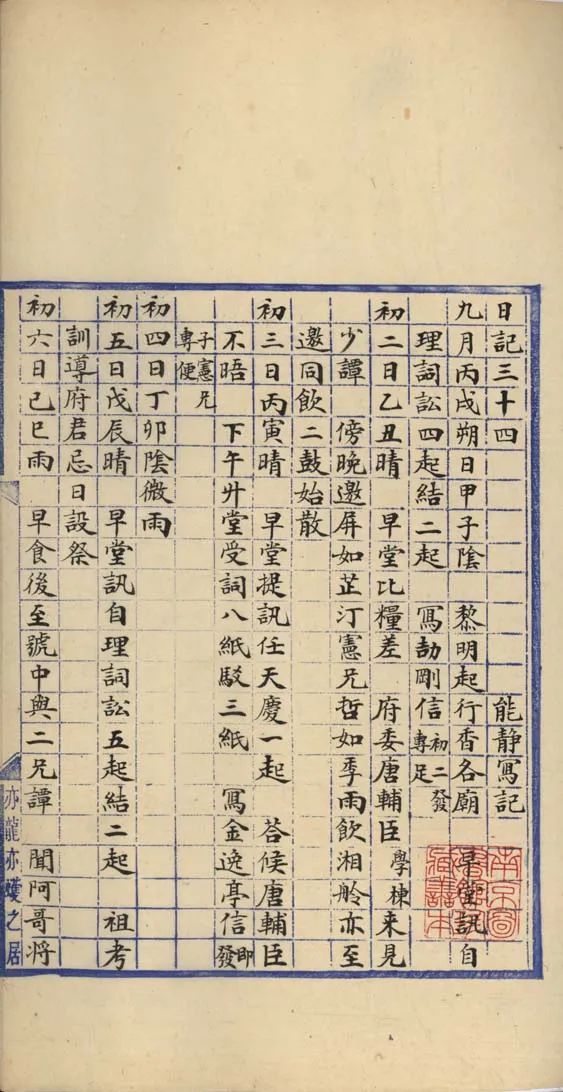 日記三十四 能静寫記
九月丙戌朔日甲子陰 黎明起行香各廟 早堂訊自
理詞訟四起結二起 寫劼剛信初二發專足
初二日乙丑晴 早堂比糧差 府委唐輔臣學棟来見
少譚 傍晚邀屏如芷汀憲兄哲如季雨飲湘舲亦至
邀同飲二鼓始散
初三日丙寅晴 早堂提訊任天慶一起 荅候唐輔臣
不晤 下午升堂受詞八紙駁三紙 寫金逸亭信即發
子憲兄專便
初四日丁卯陰微雨
初五日戊辰晴 早堂訊自理詞訟五起結二起 祖考
訓導府君忌日設祭
初六日己巳雨 早食後至號中與二兄譚 聞阿哥将
亦龍亦蠖之居
南京圖書館藏善本